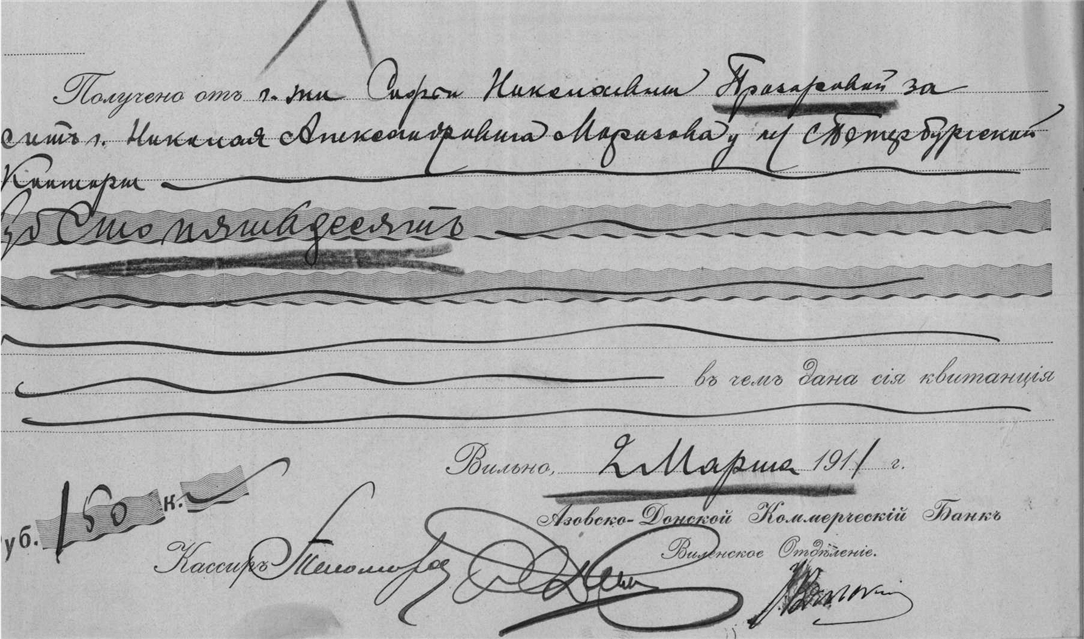 Получено отъ г-жи Софьи Николаевны Прозоровой за
счетъ г. Николая Александровича Морозова у м/ СПетербургской
Конторы
Руб Сто пятьдесятъ
въ чемъ дана сія квитанція
Вильно, 2 Марта 1911 г.
уб. 150 к.
Азовско-Донской Коммерческій Банкъ
Виленское Отдѣленіе.
Кассиръ